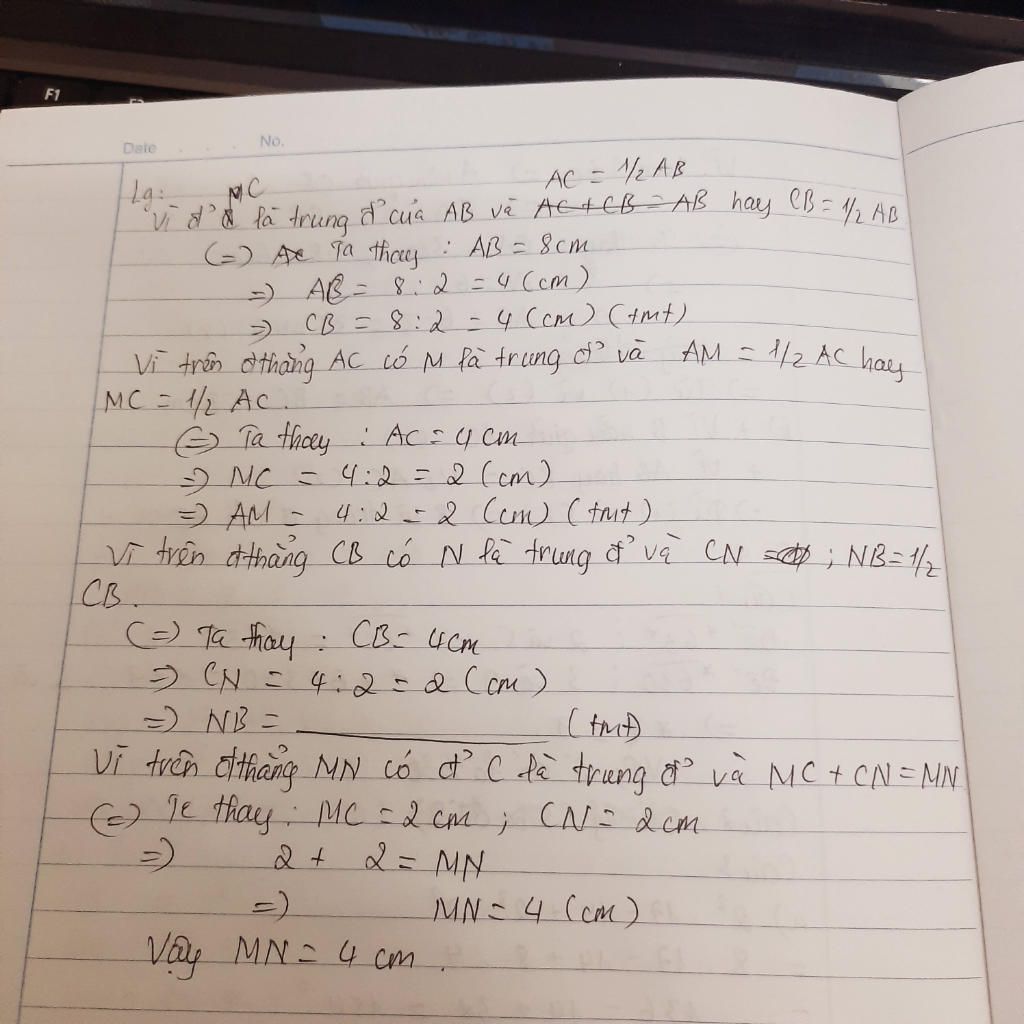 F1
Date No.
Lg: MC AC = 1/2 AB
Vì đ' là trung đ' của AB và AC + CB = AB hay CB = 1/2 AB
(=) Ta thay : AB = 8cm
=) AB = 8 : 2 = 4 (cm)
=) CB = 8 : 2 = 4 (cm) (tmt)
Vì trên đthẳng AC có M là trung đ' và AM = 1/2 AC hay
MC = 1/2 AC.
(=) Ta thay : AC = 4 cm
=) MC = 4 : 2 = 2 (cm)
=) AM = 4 : 2 = 2 (cm) (tmt)
Vì trên đthẳng CB có N là trung đ' và CN = ; NB = 1/2
CB.
(=) Ta thay : CB = 4cm
=) CN = 4 : 2 = 2 (cm)
=) NB = (tmt)
Vì trên đthẳng MN có đ' C là trung đ' và MC + CN = MN
(=) Te thay : MC = 2 cm ; CN = 2 cm
=) 2 + 2 = MN
=) MN = 4 (cm)
Vậy MN = 4 cm.